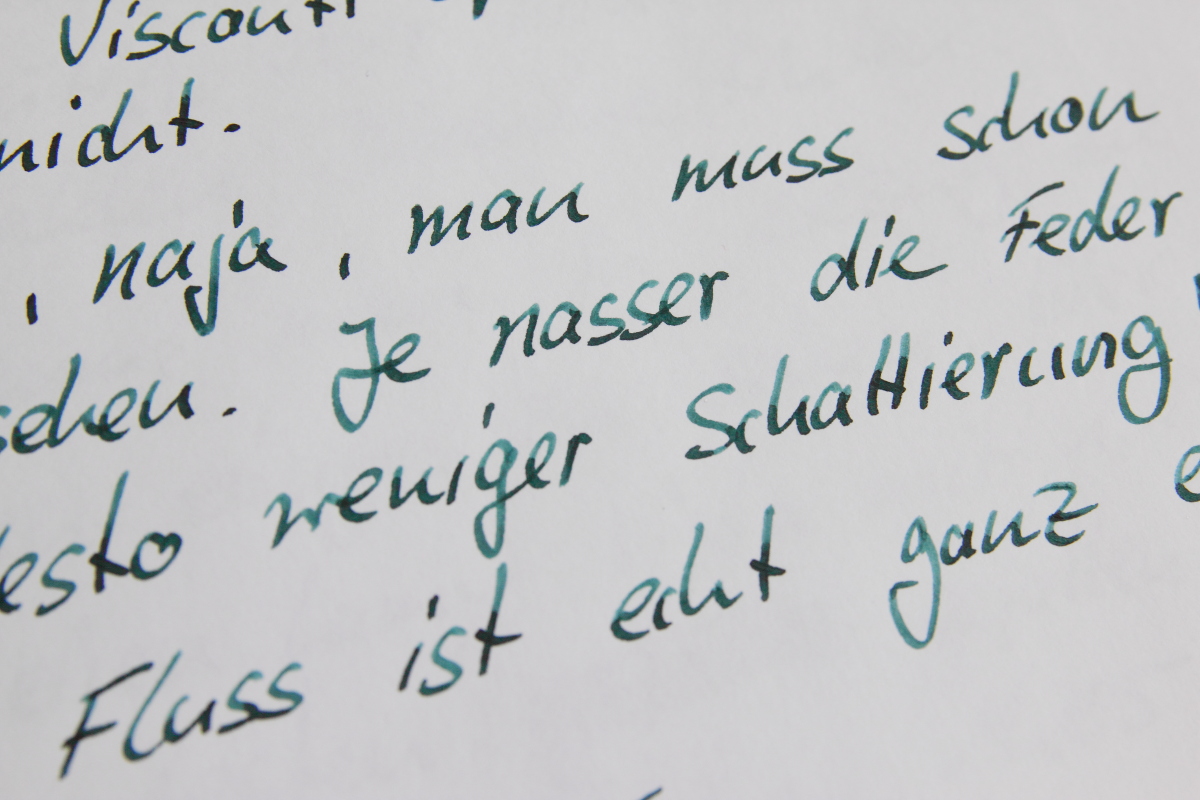 Visconti
nicht.
, naja, man muss schon
sehen. Je nasser die Feder
desto weniger Schattierung
Fluss ist echt ganz